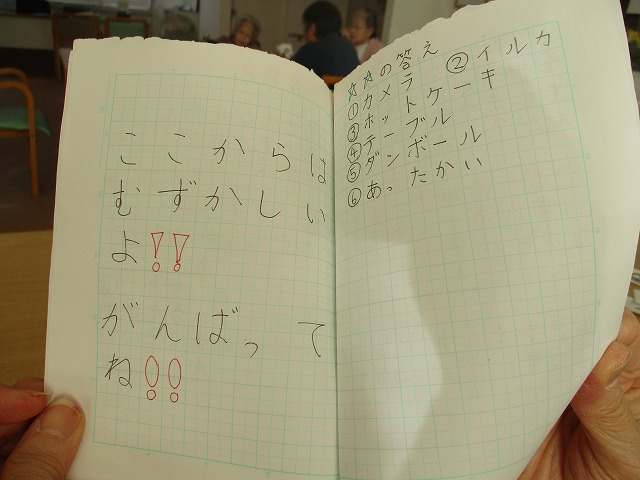 ここからは
むずかしい
よ!!
がんばって
ね!!
☆☆の答え
①カメラ ②イルカ
③ホットケーキ
④テーブル
⑤ダンボール
⑥あったかい